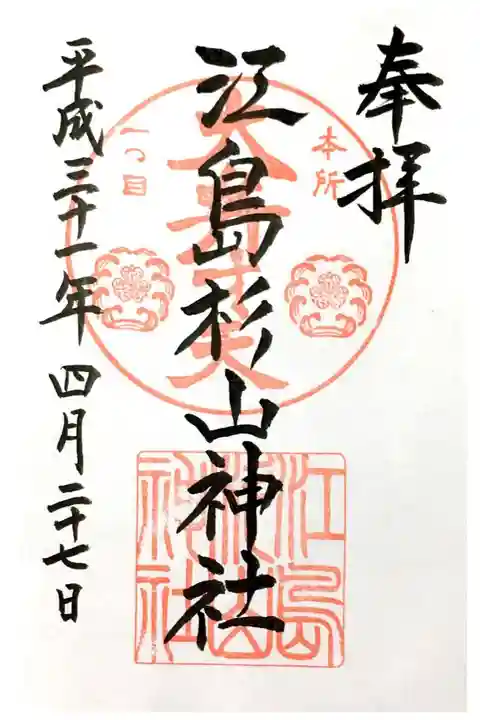 奉拝
本所
一つ目
江島杉山神社
江島
杉山
神社
平成三十一年四月二十七日